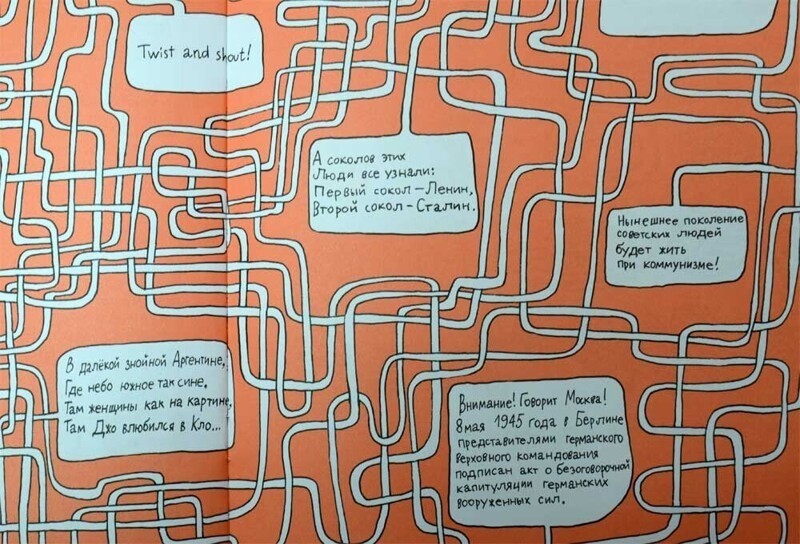 Twist and shout!
А соколов этих
Люди все узнали:
Первый сокол – Ленин,
Второй сокол – Сталин.
Нынешнее поколение
советских людей
будет жить
при коммунизме!
В далёкой знойной Аргентине,
Где небо южное так сине,
Там женщины как на картине,
Там Джо влюбился в Кло...
Внимание! Говорит Москва!
8 мая 1945 года в Берлине
представителями германского
верховного командования
подписан акт о безоговорочной
капитуляции германских
вооруженных сил.